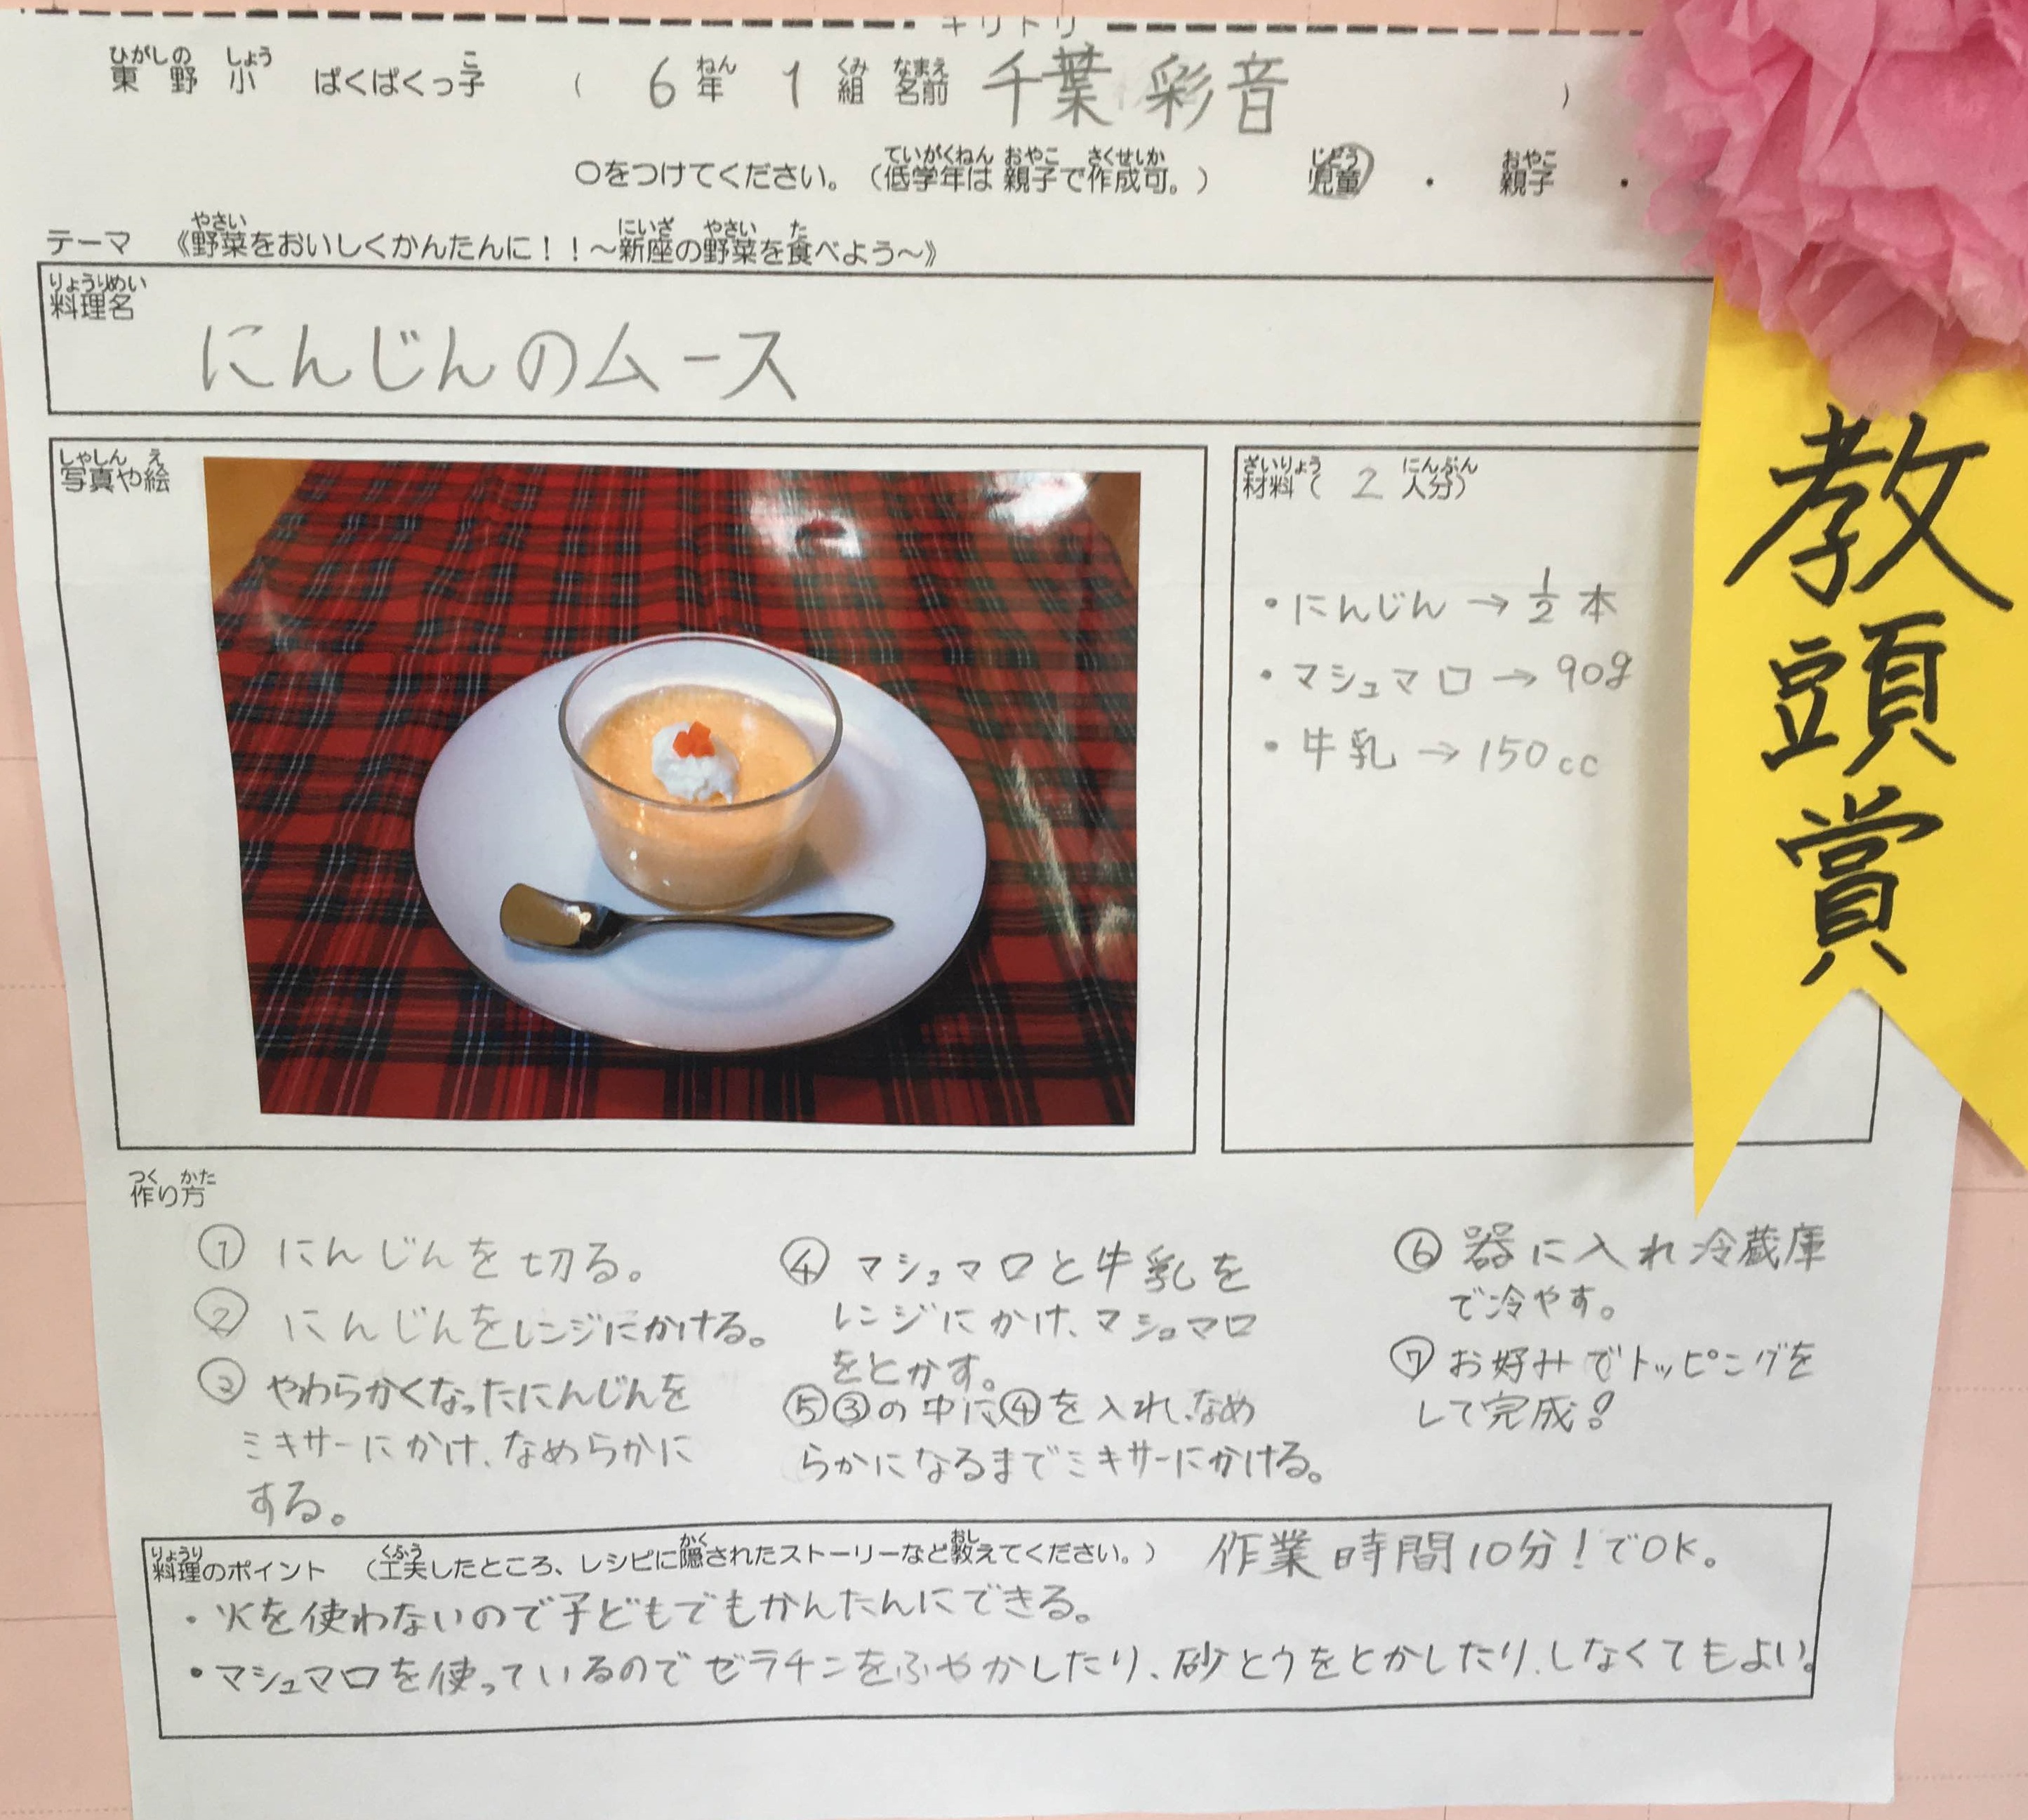 キリトリ
東野小 ぱくぱくっ子 ( 6年 1組 名前 千葉 彩音 )
○をつけてください。(低学年は 親子で作成可。) 児童 ・ 親子 ・
テーマ 《野菜をおいしくかんたんに!!~新座の野菜を食べよう~》
料理名
にんじんのムース
写真や絵
材料( 2 人分)
・にんじん→1/2本
・マシュマロ→90g
・牛乳→150cc
教頭賞
作り方
① にんじんを切る。
② にんじんをレンジにかける。
③ やわらかくなったにんじんを
ミキサーにかけ、なめらかに
する。
④ マシュマロと牛乳を
レンジにかけ、マシュマロ
をとかす。
⑤③の中に④を入れ、なめ
らかになるまでミキサーにかける。
⑥ 器に入れ冷蔵庫
で冷やす。
⑦お好みでトッピングを
して完成!
料理のポイント (工夫したところ、レシピに隠されたストーリーなど教えてください。) 作業時間10分!でOK。
・火を使わないので子どもでもかんたんにできる。
・マシュマロを使っているのでゼラチンをふやかしたり、砂とうをとかしたり、しなくてもよい。